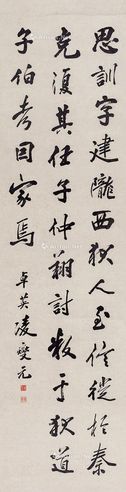 思訓字建隴西狄人至信徙於秦
克復其任子仲翔討叛于狄道
子伯考因家焉
卓英凌燮元